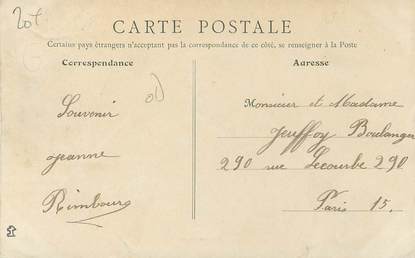 20f
CARTE POSTALE
Certains pays étrangers n'acceptant pas la correspondance de ce côté, se renseigner à la Poste
Correspondance
Souvenir
Jeanne
Rimbourg
Adresse
Monsieur et Madame
Jeuffoy Boulanger
290 rue Lecourbe 290
Paris 15.